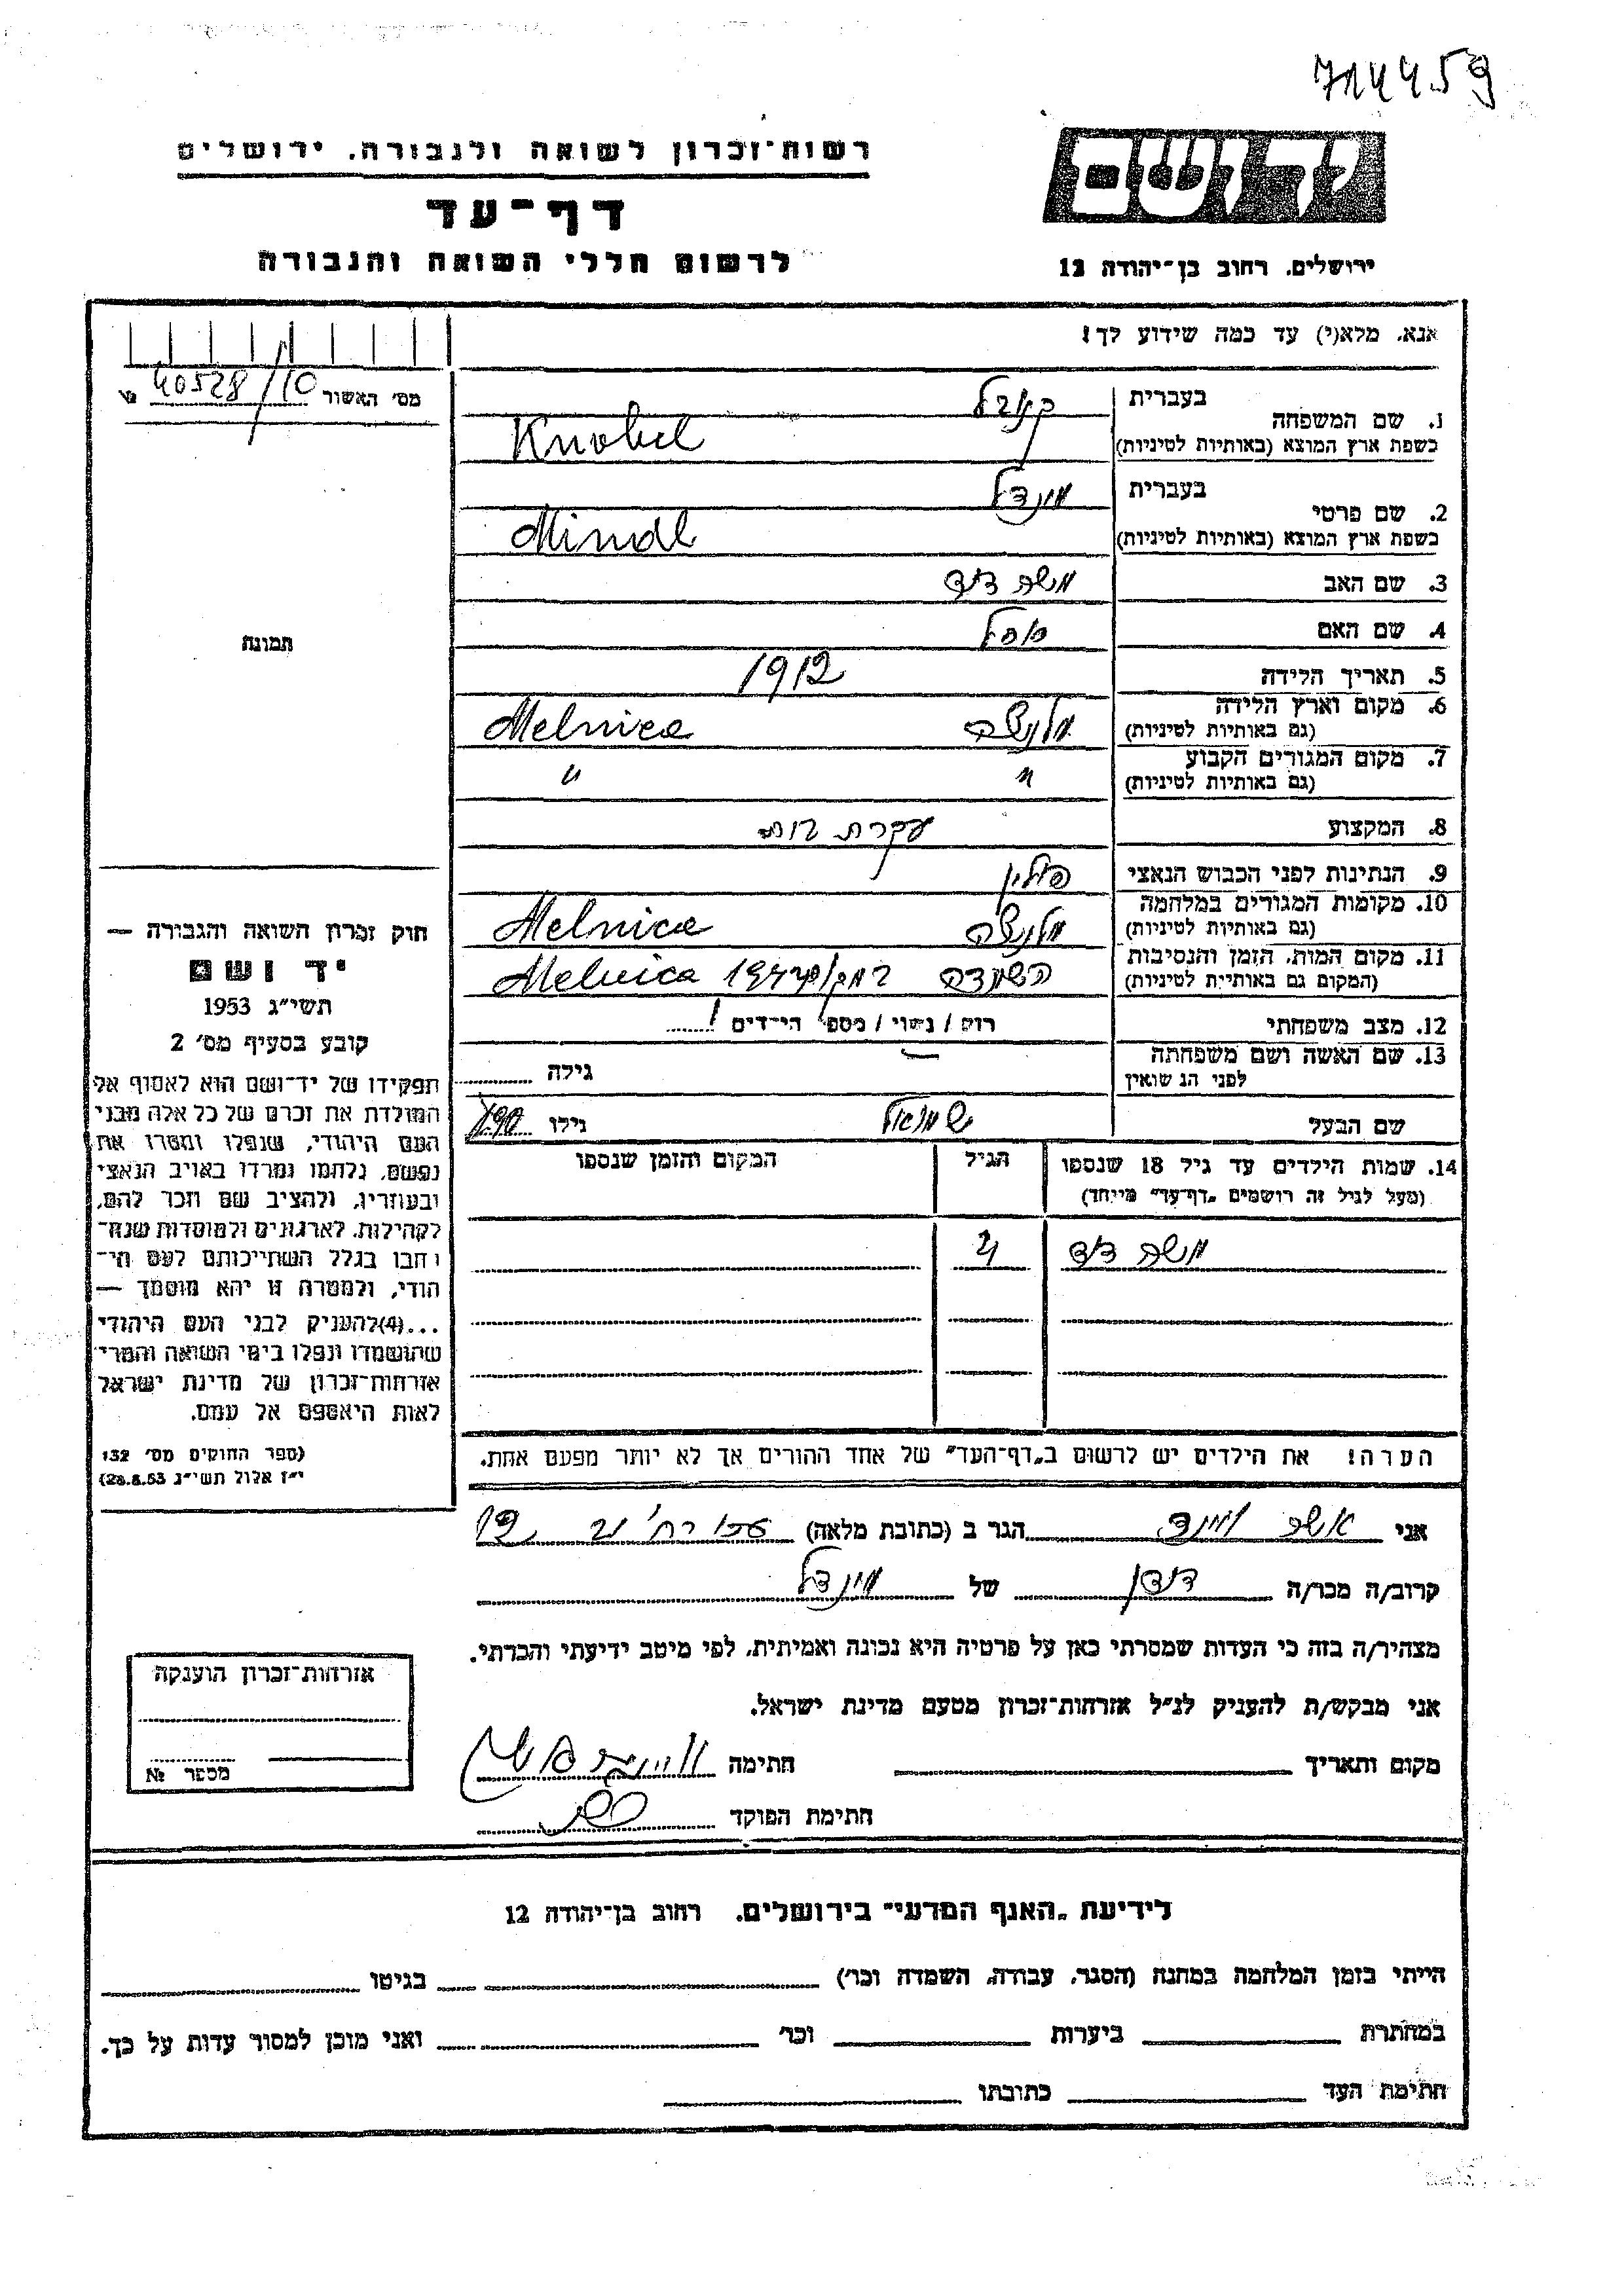 714459
רשות-זכרון לשואה ולגבורה, ירושלים
יד ושם
דף-עד
לרשום חללי השואה והגבורה
ירושלים, רחוב בן-יהודה 12
אנא, מלא(י) עד כמה שידוע לך!
מס' האשור 40528/10
1. שם המשפחה
בעברית קנובל
בשפת ארץ המוצא (באותיות לטיניות) Knobel
2. שם פרטי
בעברית מינדל
בשפת ארץ המוצא (באותיות לטיניות) Mindl
3. שם האב משה דוד
4. שם האם
5. תאריך הלידה 1912
6. מקום וארץ הלידה (גם באותיות לטיניות) מלניצה Melnica
7. מקום המגורים הקבוע (גם באותיות לטיניות) " "
8. המקצוע עקרת בית
9. הנתינות לפני הכבוש הנאצי פולין
10. מקומות המגורים במלחמה (גם באותיות לטיניות) מלניצה Melnica
11. מקום המות, הזמן והנסיבות (המקום גם באותיות לטיניות) השמדה Melnica
12. מצב משפחתי רוק / נשוי / מספר הילדים 1
13. שם האשה ושם משפחתה לפני הנשואין גילה
שם הבעל שמואל גילו
14. שמות הילדים עד גיל 18 שנספו הגיל המקום והזמן שנספו
(מעל לגיל זה רושמים „דף-עד" מייחד)
משה דוד
הערה! את הילדים יש לרשום ב„דף-העד" של אחד ההורים אך לא יותר מפעם אחת.
תמונה
חוק זכרון השואה והגבורה —
יד ושם
תשי"ג 1953
קובע בסעיף מס' 2
תפקידו של יד-ושם הוא לאסוף אל
המולדת את זכרם של כל אלה מבני
העם היהודי, שנפלו ומסרו את
נפשם, נלחמו ומרדו באויב הנאצי
ובעוזריו, ולהציב שם וזכר להם,
לקהילות, לארגונים ולמוסדות שנח-
רבו בגלל השתייכותם לעם הי-
הודי, ולמטרה זו יהא מוסמך —
...(4)להעניק לבני העם היהודי
שהושמדו ונפלו בימי השואה והמרי
אזרחות-זכרון של מדינת ישראל
לאות היאספם אל עמם.
(ספר החוקים מס' 132
י"ז אלול תשי"ג 28.8.53)
אני אשר הגר ב (כתובת מלאה)
קרוב/ה מכר/ה של מינדל
מצהיר/ה בזה כי העדות שמסרתי כאן על פרטיה היא נכונה ואמיתית, לפי מיטב ידיעתי והכרתי.
אני מבקש/ת להעניק לנ"ל אזרחות-זכרון מטעם מדינת ישראל.
מקום ותאריך חתימה
חתימת הפוקד
אזרחות-זכרון הוענקה
מספר №
לידיעת „האגף המדעי" בירושלים, רחוב בן-יהודה 12
הייתי בזמן המלחמה במחנה (הסגר, עבודה, השמדה וכו') בגיטו
במחתרת ביערות וכו' ואני מוכן למסור עדות על כך.
חתימת העד כתובתו